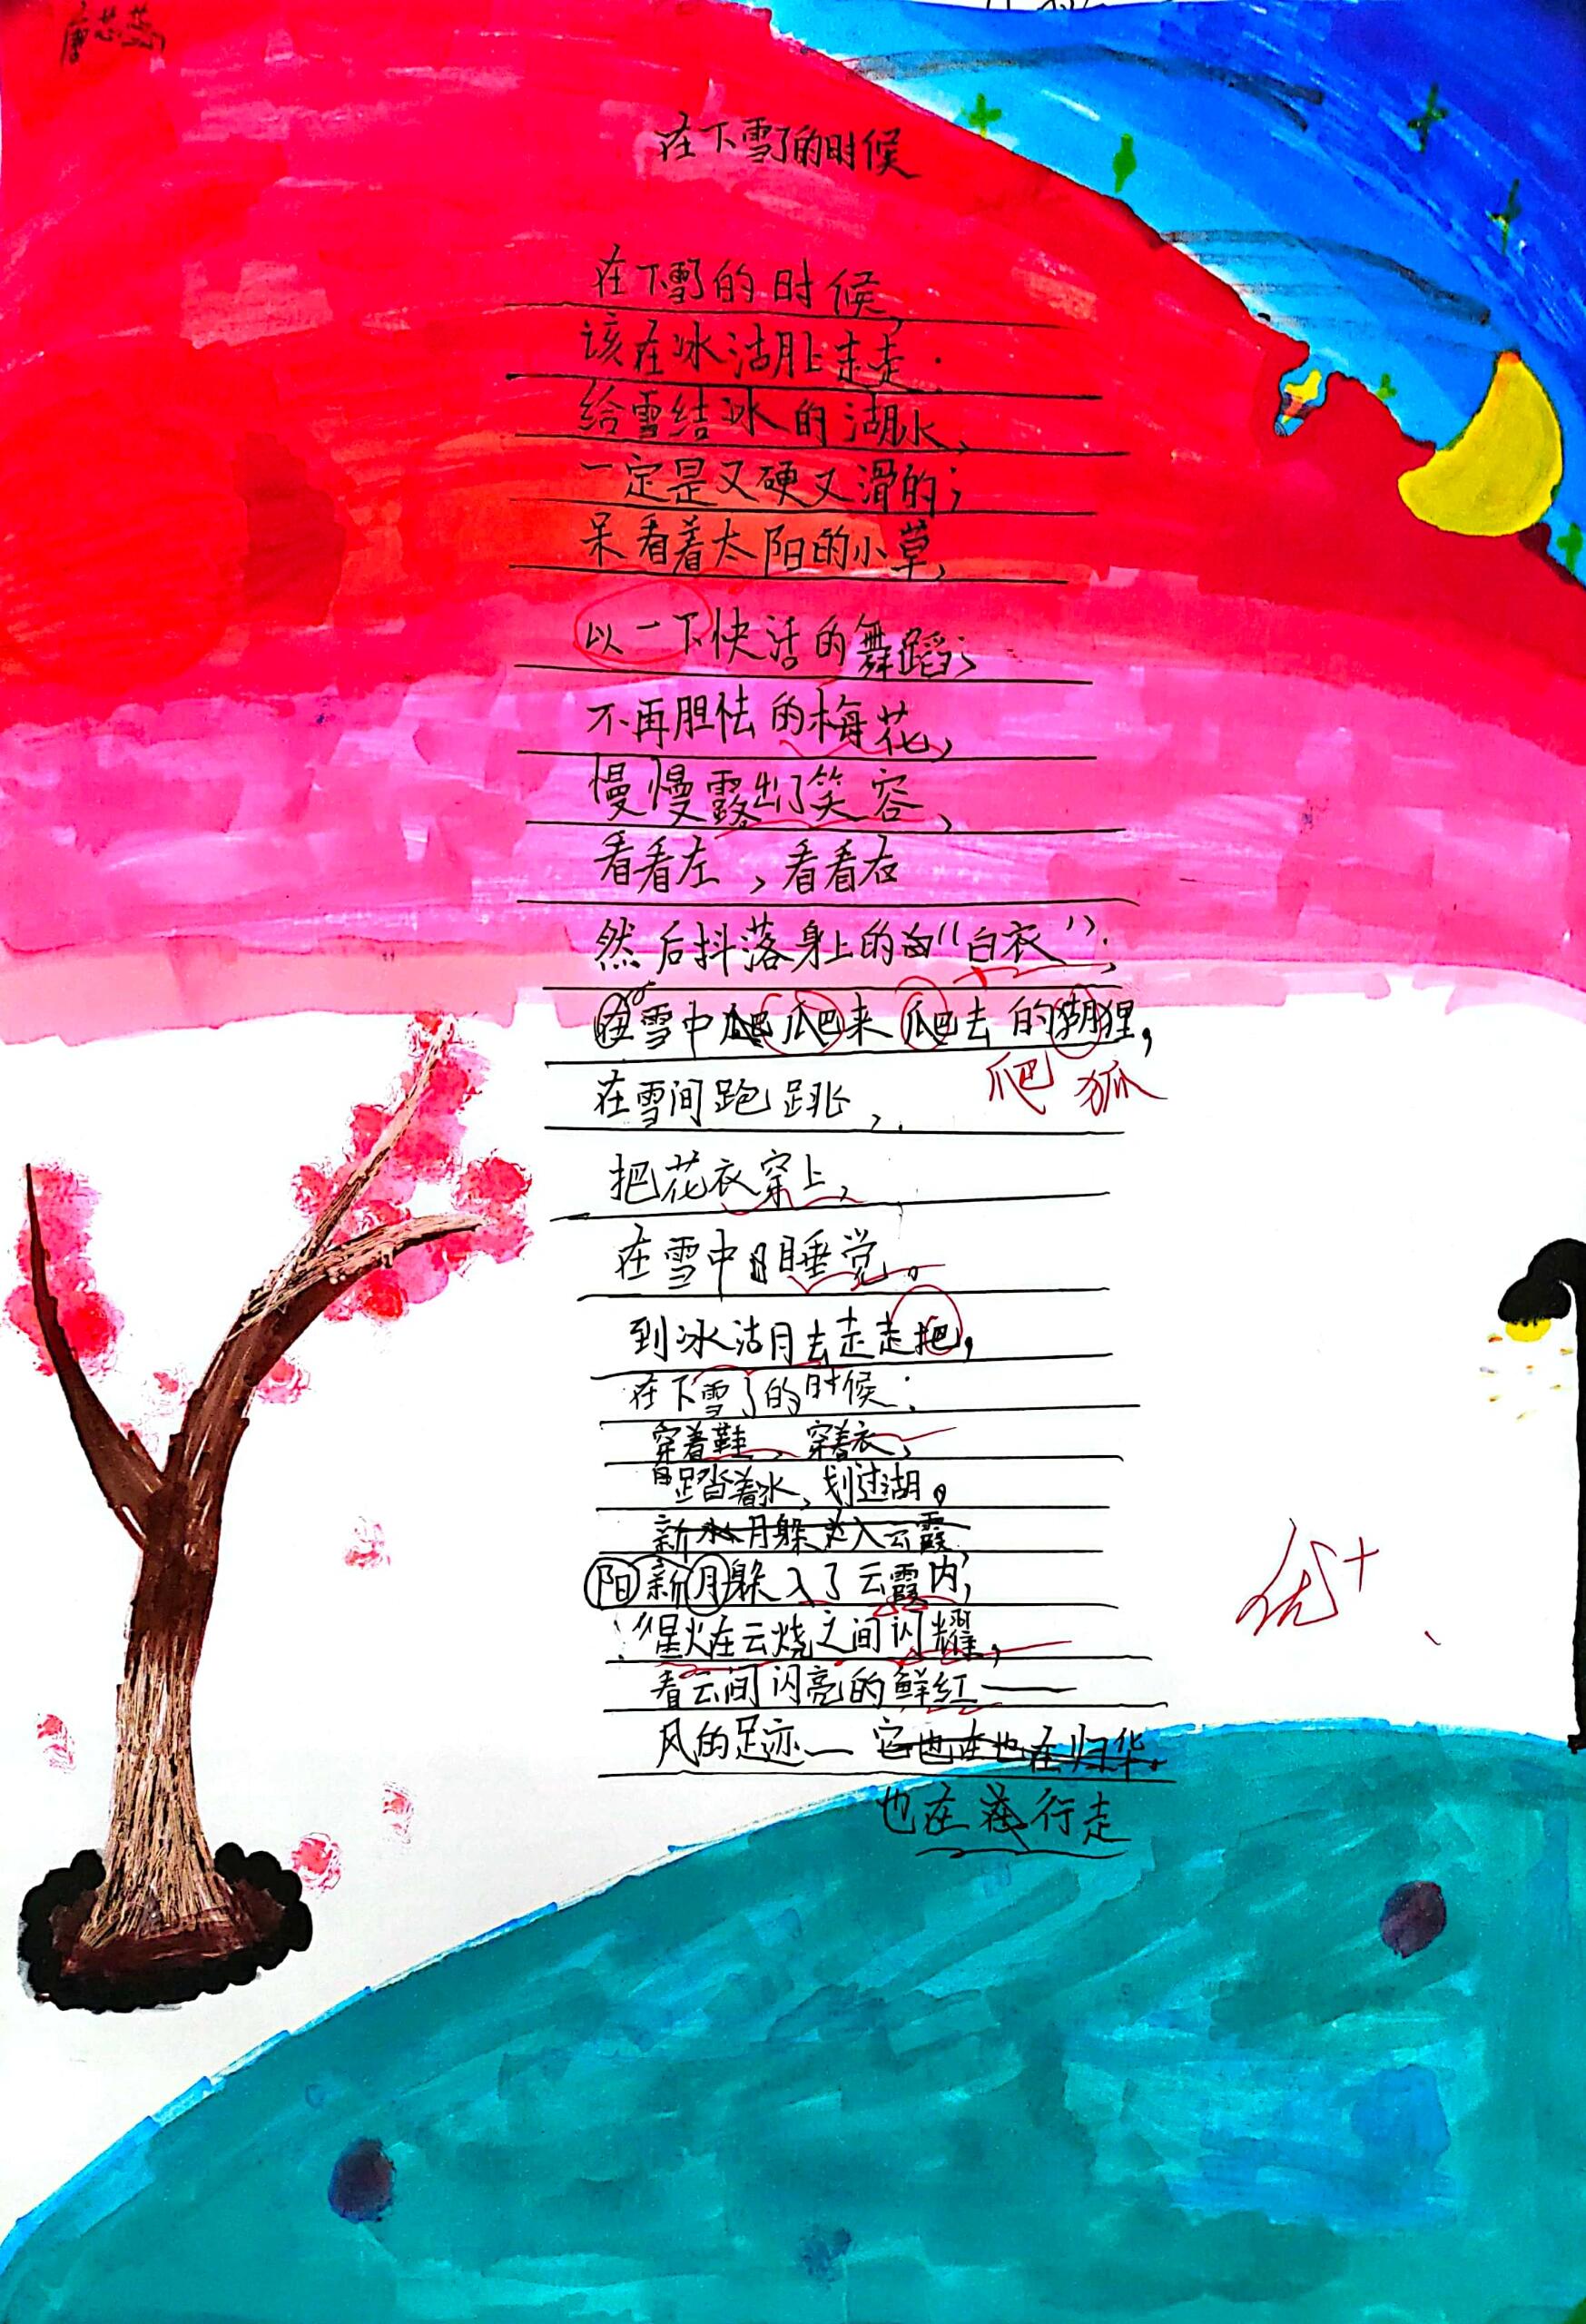 在下雪了的时候
在下雪了的时候，
该在冰湖上走走．
给雪结冰的湖水，
一定是又硬又滑的；
呆看着太阳的小草，
以一下快活的舞蹈；
不再胆怯的梅花，
慢慢露出了笑容，
看看左，看看右
然后抖落身上的“白衣”；
在雪中爬来爬去的猢狸，
爬 狐
在雪间跑跳，
把花衣穿上，
在雪中睡觉。
到冰湖去走走把，
在下雪了的时候；
穿着鞋，穿着衣，
踏着冰，划过湖。
新月躲入云霞
阳新月躲入了云霞内，
“星火在云烧之间闪耀，
优+
看云间闪亮的鲜红——
风的足迹—它也在也在归华．
也在行走